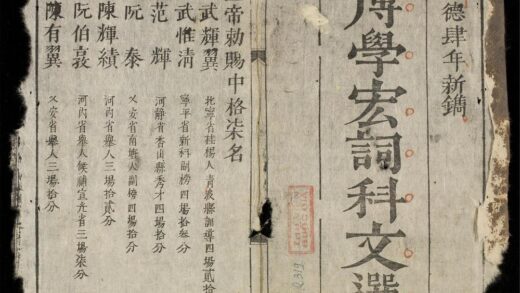 德肆年新鐫
博學宏詞科文選
帝勅賜中格柒名
武輝翼
武惟清 寧平省新科副榜四場拾叁分
范輝 河靜省香山縣秀才四場拾分
阮泰 乂安省南塘人副榜四場拾分
陳輝績 河內省舉人三場拾貳分
阮伯敦 河內省舉人候補宣光省三場柒分
陳有翼 乂安省舉人三場拾分